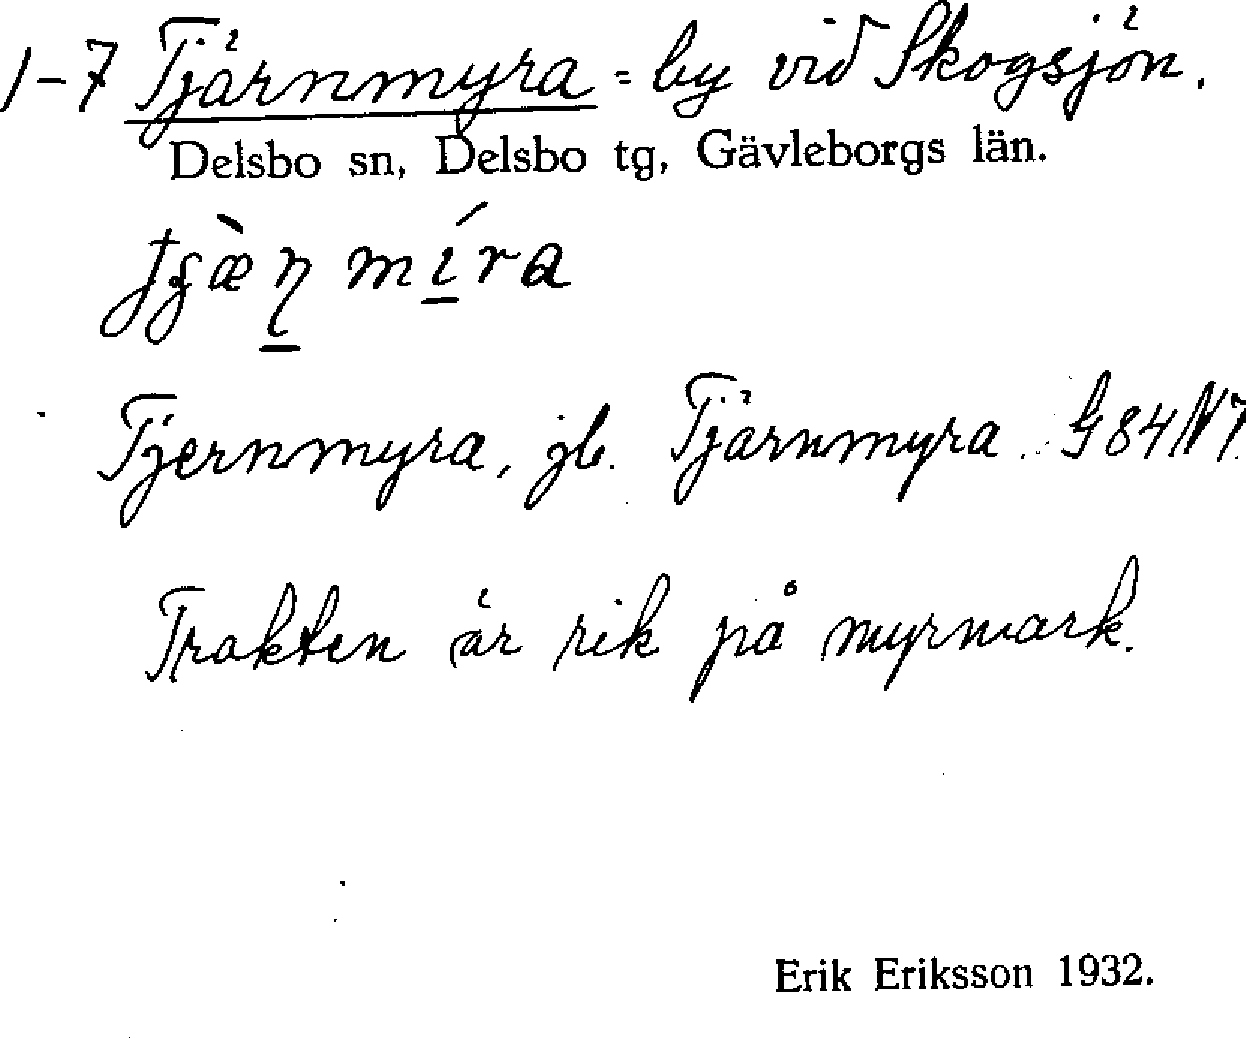 1-7 Tjärnmyra = by vid Skogsjön.
Delsbo sn, Delsbo tg, Gävleborgs län.
míra
Tjernmyra, jb. Tjärnmyra. G84N7.
Trakten är rik på myrmark.
Erik Eriksson 1932.